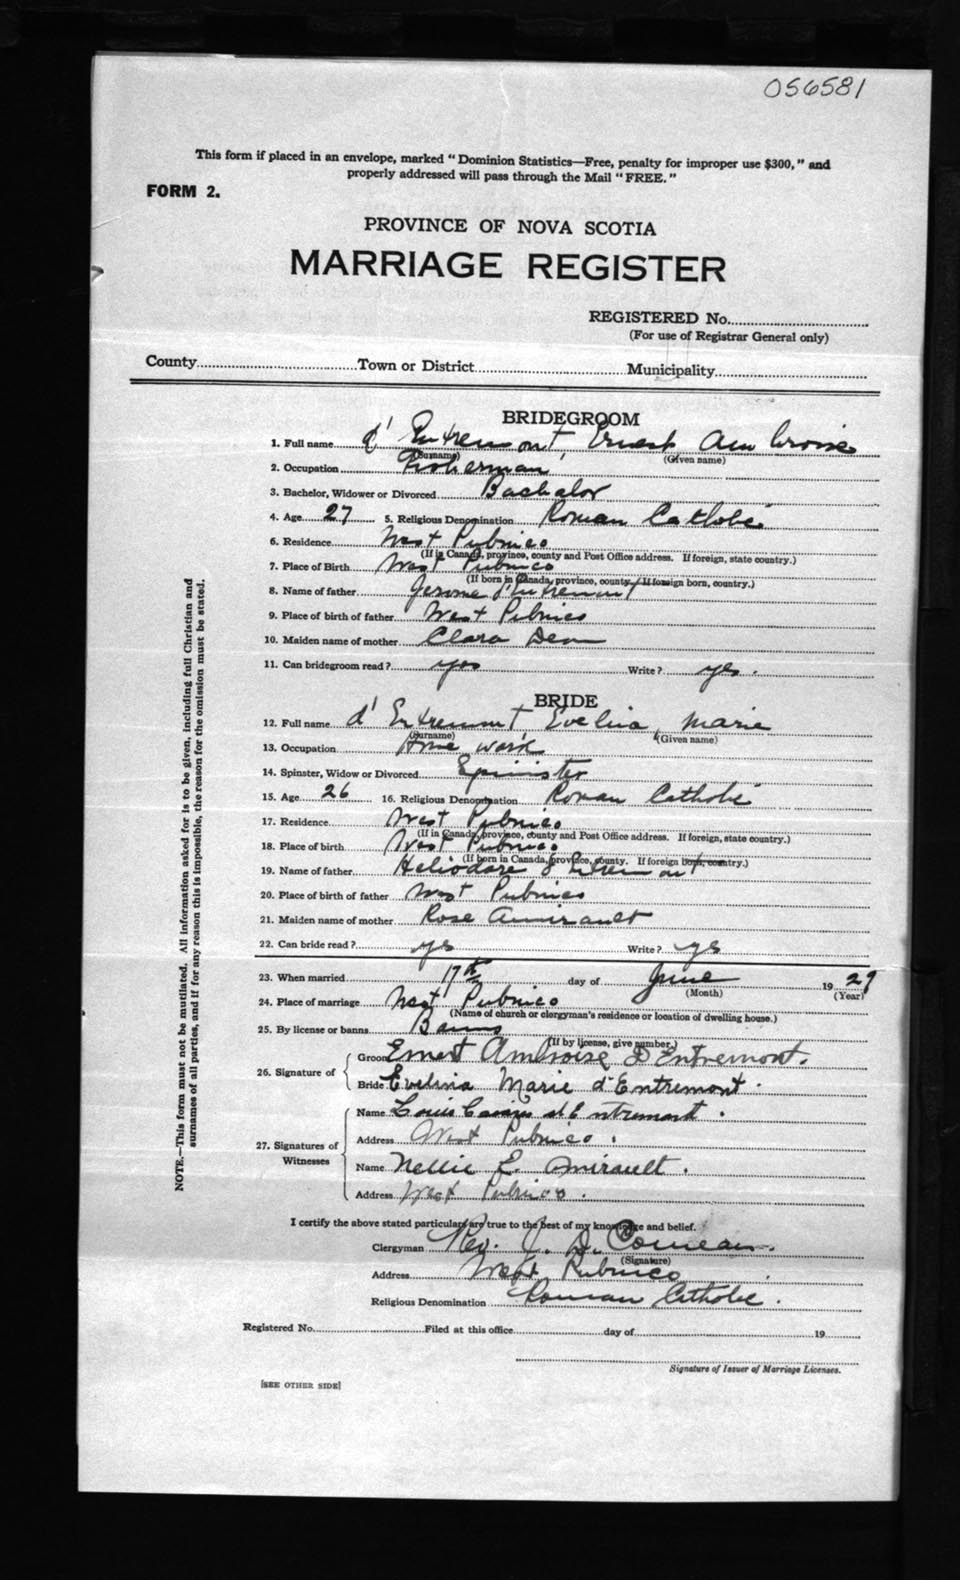 056581
This form if placed in an envelope, marked "Dominion Statistics—Free, penalty for improper use $300," and
properly addressed will pass through the Mail "FREE."
FORM 2.
PROVINCE OF NOVA SCOTIA
MARRIAGE REGISTER
REGISTERED No.
(For use of Registrar General only)
County Town or District Municipality
BRIDEGROOM
1. Full name d'Entremont, Ernest Ambroise
(Surname) (Given name)
2. Occupation Fisherman
3. Bachelor, Widower or Divorced Bachelor
4. Age 27 5. Religious Denomination Roman Catholic
6. Residence West Pubnico
(If in Canada, province, county and Post Office address. If foreign, state country.)
7. Place of Birth West Pubnico
(If born in Canada, province, county. If foreign born, country.)
8. Name of father Jerome d'Entremont
9. Place of birth of father West Pubnico
10. Maiden name of mother Clara Deon
11. Can bridegroom read? yes Write? yes.
BRIDE
12. Full name d'Entremont, Evelina, Marie
(Surname) (Given name)
13. Occupation Home work
14. Spinster, Widow or Divorced Spinister
15. Age 26 16. Religious Denomination Roman Catholic
17. Residence West Pubnico
(If in Canada, province, county and Post Office address. If foreign, state country.)
18. Place of birth West Pubnico
(If born in Canada, province, county. If foreign born, country.)
19. Name of father Heliodore d'Entremont
20. Place of birth of father West Pubnico
21. Maiden name of mother Rose Amirault
22. Can bride read? yes Write? yes
23. When married 17th day of June 19 29
(Month) (Year)
24. Place of marriage West Pubnico
(Name of church or clergyman's residence or location of dwelling house.)
25. By license or banns Banns
(If by license, give number.)
26. Signature of
Groom Ernest Ambroise D'Entremont.
Bride Evelina Marie d'Entremont.
27. Signatures of Witnesses
Name Louis d'Entremont.
Address West Pubnico.
Name Nellie E. Amirault.
Address West Pubnico.
I certify the above stated particulars are true to the best of my knowledge and belief.
Clergyman Rev. J. D. Comeau.
(Signature)
Address West Pubnico
Religious Denomination Roman Catholic.
Registered No. Filed at this office day of 19
Signature of Issuer of Marriage Licenses.
[SEE OTHER SIDE]
NOTE.—This form must not be mutilated. All information asked for is to be given, including full Christian and
surnames of all parties, and if for any reason this is impossible, the reason for the omission must be stated.